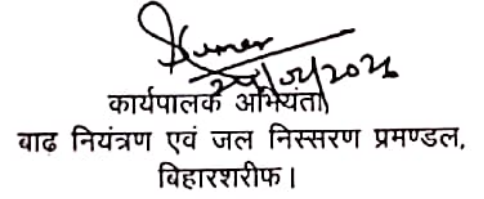 Kumar
कार्यपालक अभियंता
बाढ़ नियंत्रण एवं जल निस्सरण प्रमण्डल,
बिहारशरीफ।